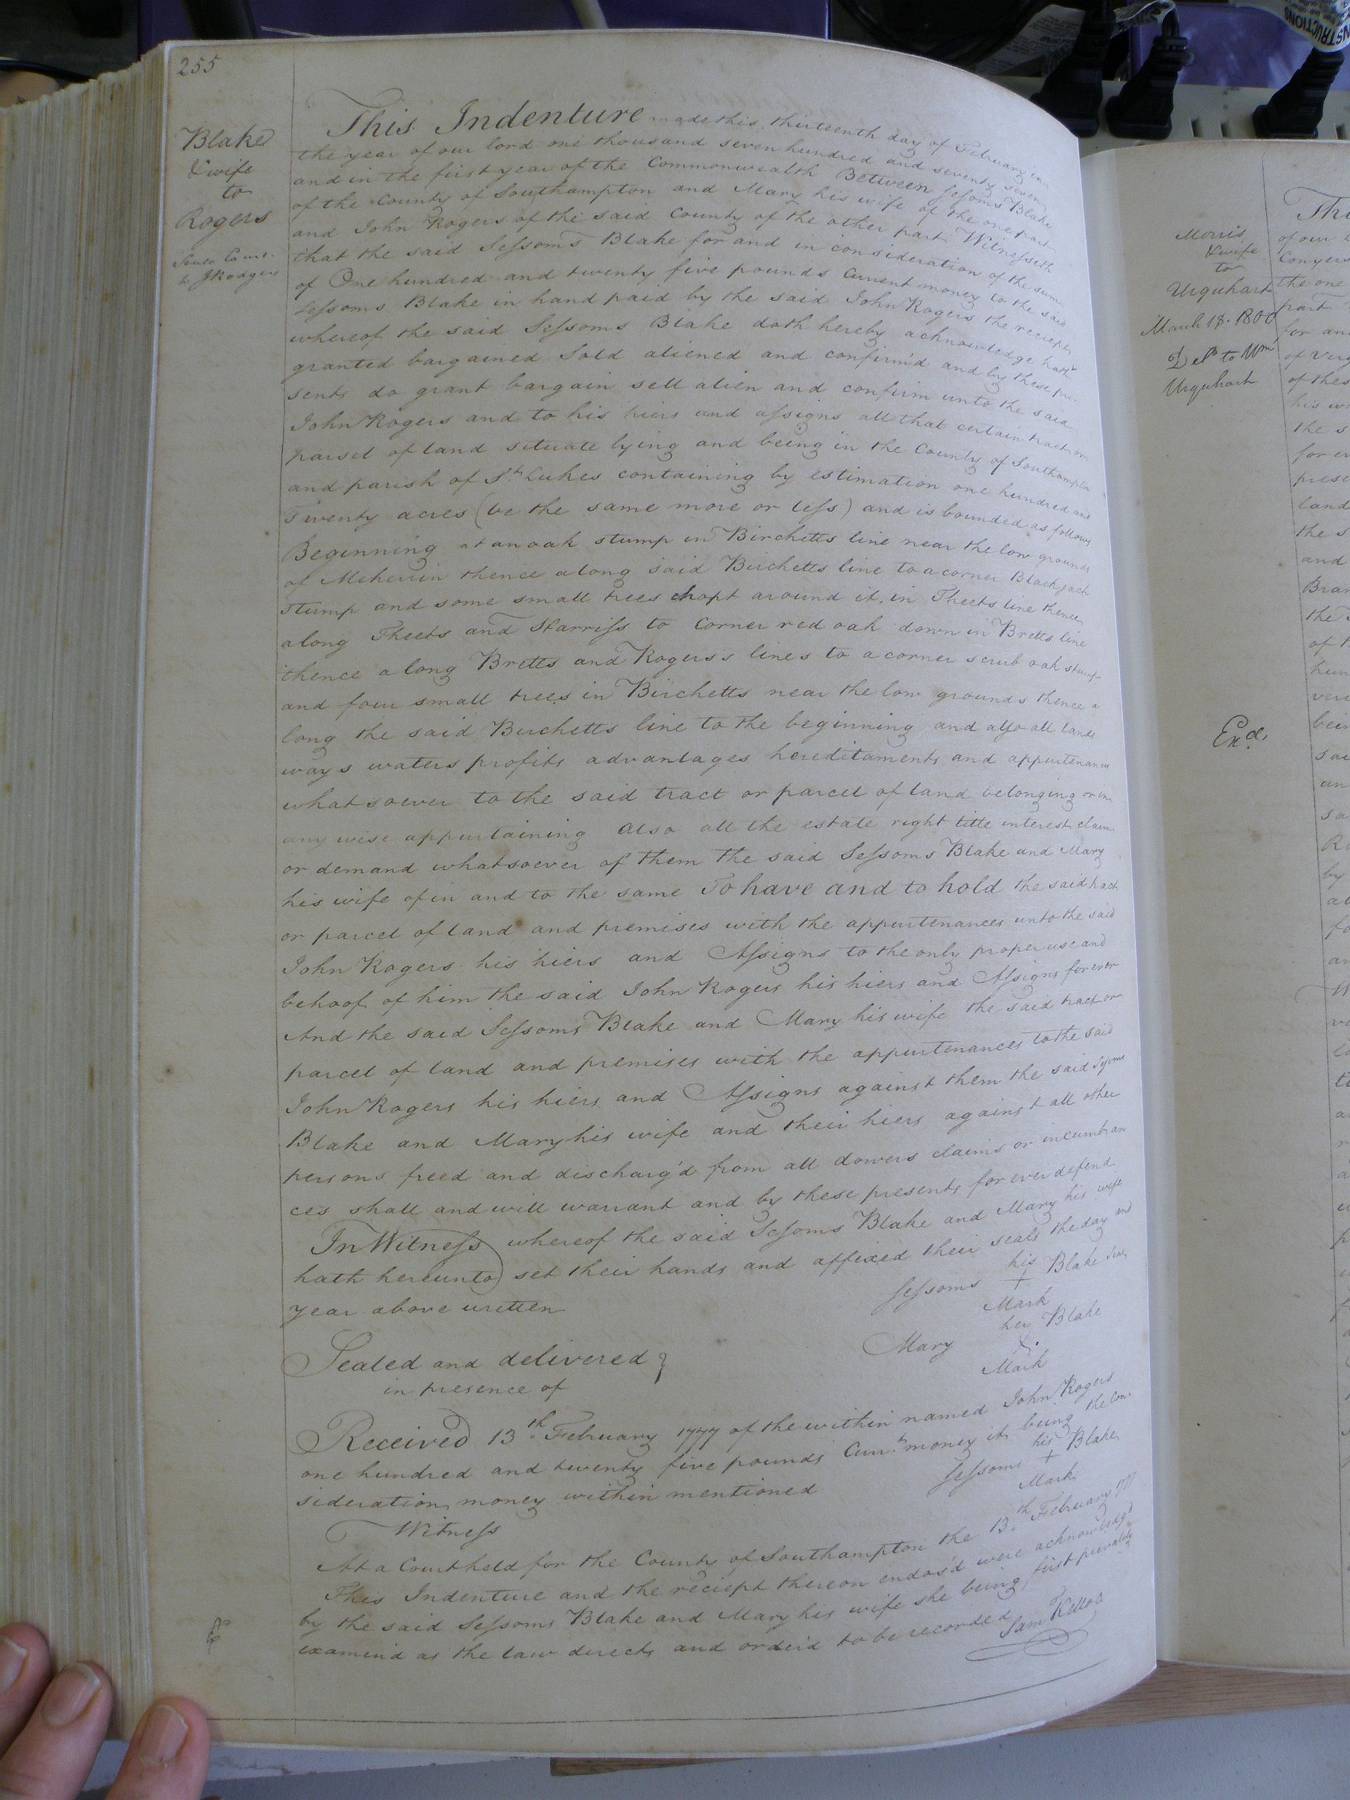 255
Blake
& wife
to
Rogers
This Indenture made this thirteenth day of February in
the year of our lord one thousand seven hundred and seventy seven
and in the first year of the Commonwealth Between Sessoms Blake
of the County of Southampton and Mary his wife of the one part
and John Rogers of the said County of the other part Witnesseth
that the said Sessoms Blake for and in consideration of the sum
of One hundred and twenty five pounds Current money to the said
Sessoms Blake in hand paid by the said John Rogers the reciept
whereof the said Sessoms Blake doth hereby acknowledge hath
granted bargained Sold aliened and confirm'd and by these pre-
sents do grant bargain sell alien and confirm unto the said
John Rogers and to his hiers and assigns all that certain tract or
parsel of land situate lying and being in the County of Southampton
and parish of St. Lukes containing by estimation one hundred and
Twenty acres (be the same more or less) and is bounded as follows
Beginning at an oak stump in Birchetts line near the low grounds
of Meherrin thence along said Birchetts line to a corner Black jack
stump and some small trees chopt around it, in Theets line thence
along Theets and Starriss to Corner red oak down in Bretts line
thence along Bretts and Rogers's lines to a corner scrub oak stump
and four small trees in Birchetts near the low grounds thence a
long the said Birchetts line to the beginning and also all lands
ways waters profits advantages hereditaments and appurtenances
whatsoever to the said tract or parcel of land belonging or in
any wise appurtaining also all the estate right title interest claim
or demand whatsoever of them the said Sessoms Blake and Mary
his wife of in and to the same To have and to hold the said tract
or parcel of land and premises with the appurtenances unto the said
John Rogers his hiers and Assigns to the only proper use and
behoof of him the said John Rogers his hiers and Assigns forever
And the said Sessoms Blake and Mary his wife the said tract or
parcel of land and premises with the appurtenances to the said
John Rogers his hiers and Assigns against them the said Sessoms
Blake and Mary his wife and their hiers against all other
persons freed and discharg'd from all dowers claims or incumbran
ces shall and will warrant and by these presents for ever defend
In Witness whereof the said Sessoms Blake and Mary his wife
hath hereunto set their hands and affixed their seals the day and
year above written
his
Sessoms + Blake Seal
Mark
her
Mary Blake
Mark
Sealed and delivered }
in presence of
Received 13th February 1777 of the within named John Rogers
one hundred and twenty five pounds Curr.t money it being the Con-
sideration money within mentioned
his
Sessoms + Blake
Mark
Witness
At a Court held for the County of Southampton the 13th February 1777
This Indenture and the reciept thereon endos'd were acknowledg'd
by the said Sessoms Blake and Mary his wife she being first privately
examind as the law directs and orderd to be recorded
Morris
& wife
to
Urquhart
March 18. 1800
Del.d to Wm
Urquhart
Exd.